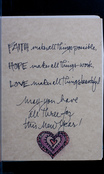 FAITH makes all things possible.
HOPE makes all things work.
LOVE makes all things beautiful!
may you have
all three for
this New Year!